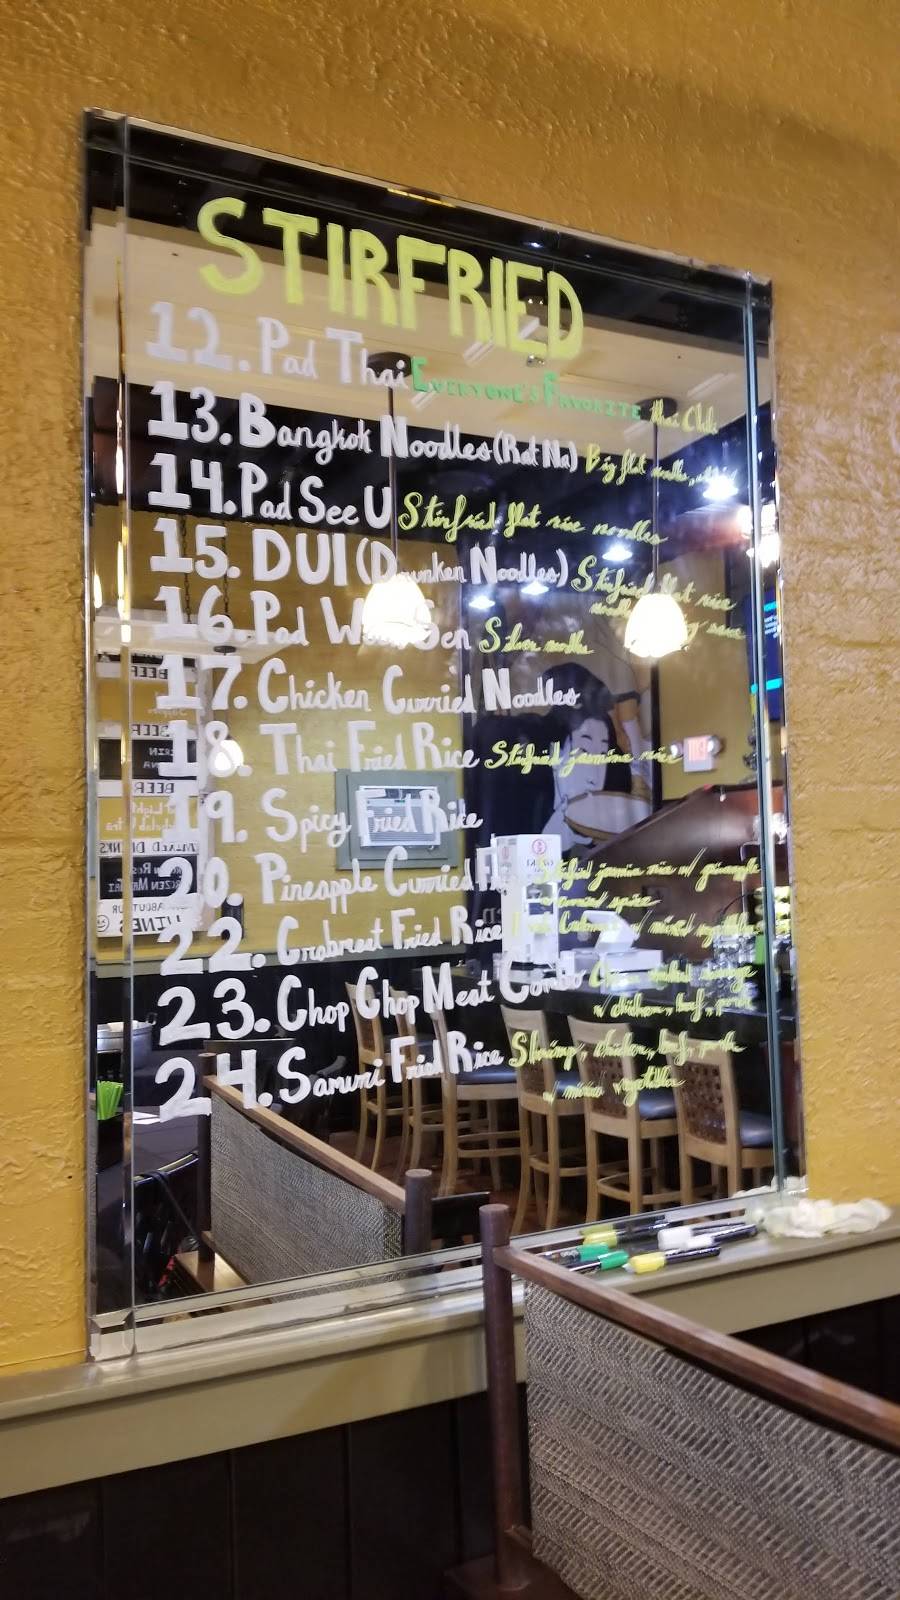 STIRFRIED
12. Pad Thai EVERYONE'S FAVORITE thai Chili
13. Bangkok Noodles (Rat Na) Big flat noodles,
14. Pad See U Stirfried flat rice noodles
15. DUI (Drunken Noodles) Stirfried flat rice
noodles
16. Pad Woon Sen Silver noodles
17. Chicken Curried Noodles
18. Thai Fried Rice Stirfried jasmine rice
19. Spicy Fried Rice
20. Pineapple Curried Stirfried jasmine rice w/ pineapple
spice
22. Crabmeat Fried Rice w/ mixed vegetables
23. Chop Chop Meat Combo
w/ chicken, beef, pork
24. Samurai Fried Rice Shrimp, chicken, beef, pork
w/ mixed vegetables